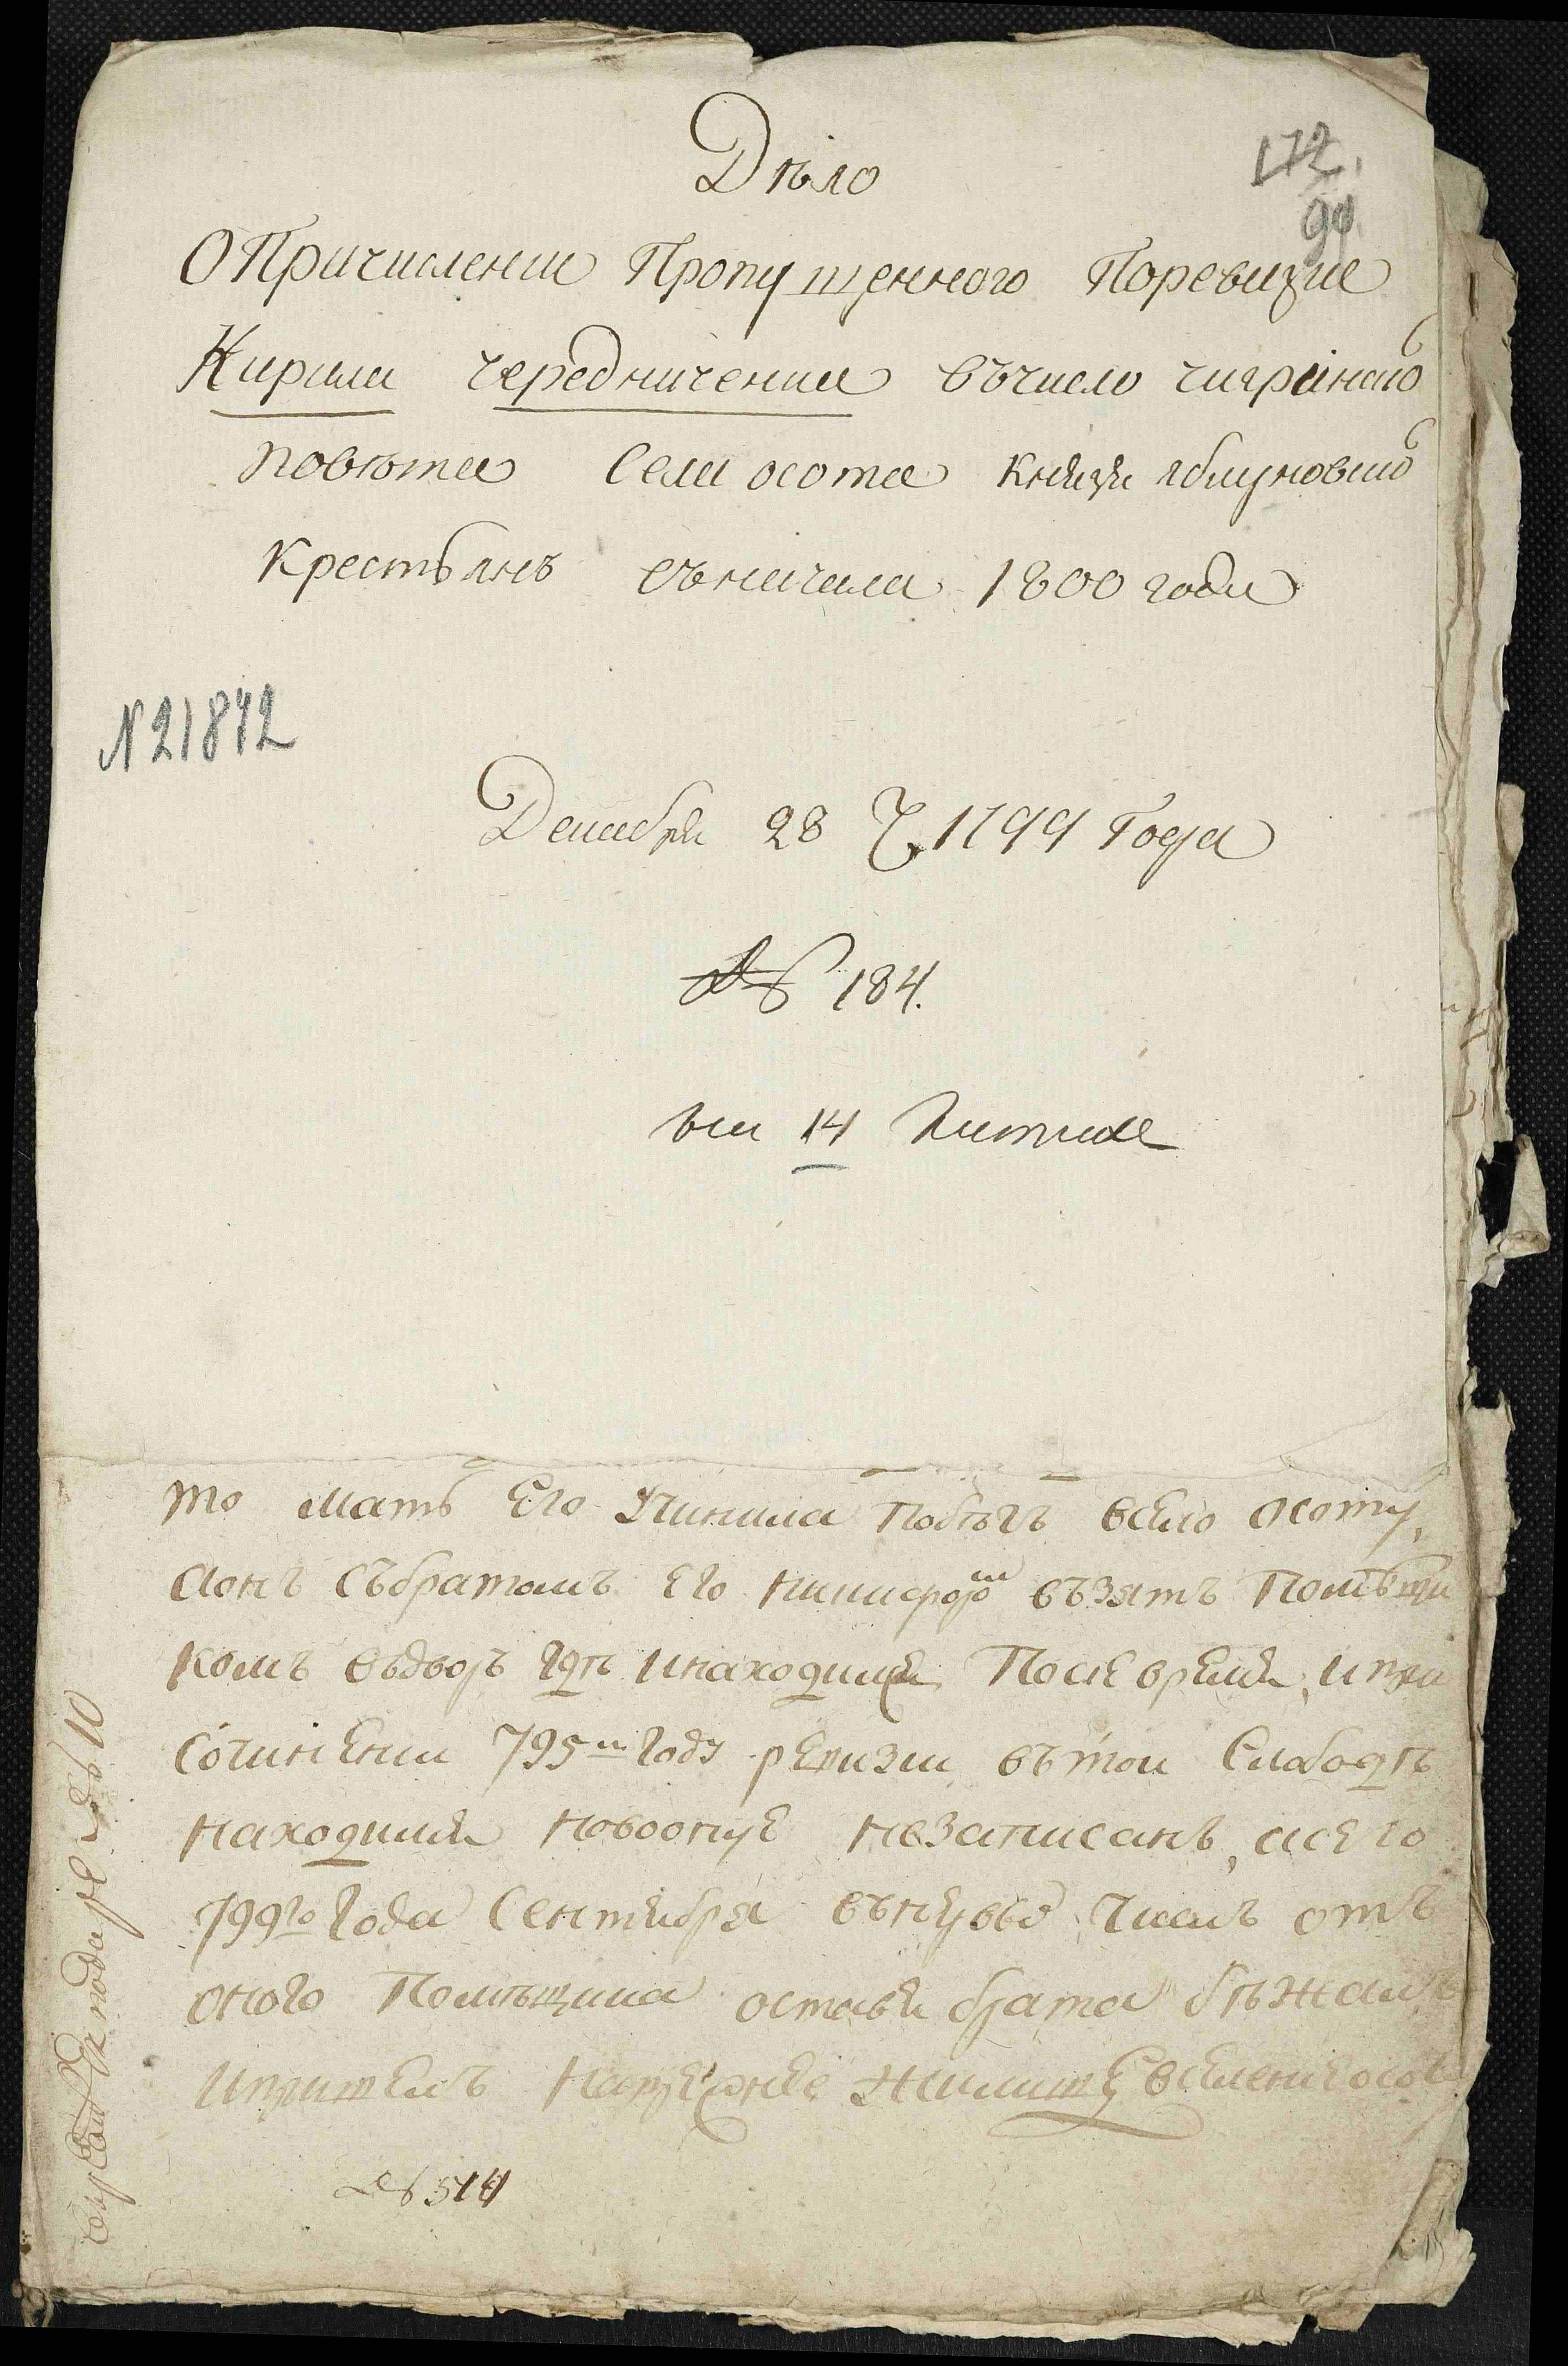 Дѣло
172.
94
О Причисленіи Пропущенного Поревизіи
Кирила Чередниченка въчисло чигринского
повѣта Села осота князя яблуновского
крестьянъ съначала 1800 года
N 21842
Декабря 28 Ч. 1799 Года
№ 184.
на 14 Листахъ
то мать его побѣгъ всело осоту,
аонъ събратомъ его никифоромъ възятъ Помѣщи
комъ въдворъ гдѣ инаходился Посіе время, ипри
сочиненіи 795ш году ревизіи вътои Слободѣ
находился новооную незаписанъ, асего
799го года Сентября въпервыхъ Числахъ отъ
оного Помѣщика оставя брата бѣжалъ
ипришелъ напрежнее жилище вселеніе
№ 514